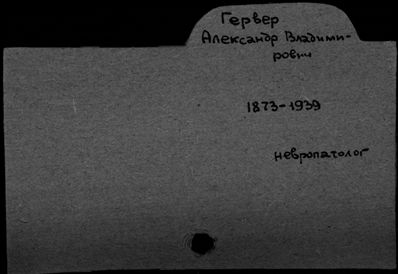 Гервер
Александр Владими-
рович
1873-1939
невропатолог